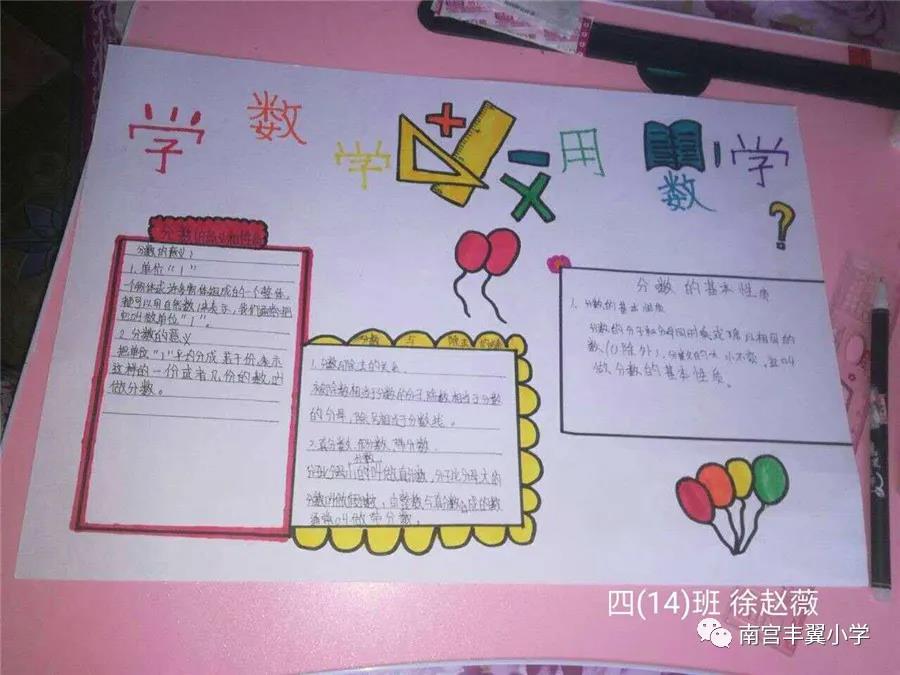 学 数 学 用 数 学
分数的意义和性质
分数的意义:
1. 单位“1”
一个物体或许多物体组成的一个整体,
都可以用自然数1来表示,我们通常把
它叫做单位“1”。
2. 分数的意义
把单位“1”平均分成若干份,表示
这样的一份或者几份的数叫
做分数。
分数 与 除法 的
1. 分数与除法的关系
被除数相当于分数的分子,除数相当于分数
的分母,除号相当于分数线。
2. 真分数、假分数、带分数。
分数
分子比分母小的叫做真分数,分子比分母大的
分数叫做假分数,由整数与真分数合成的数
通常叫做带分数。
分数的基本性质
1. 分数的基本性质
分数的分子和分母同时乘或除以相同的
数(0除外),分数的大小不变,这叫
做分数的基本性质。
四(14)班 徐赵薇
南宫丰翼小学